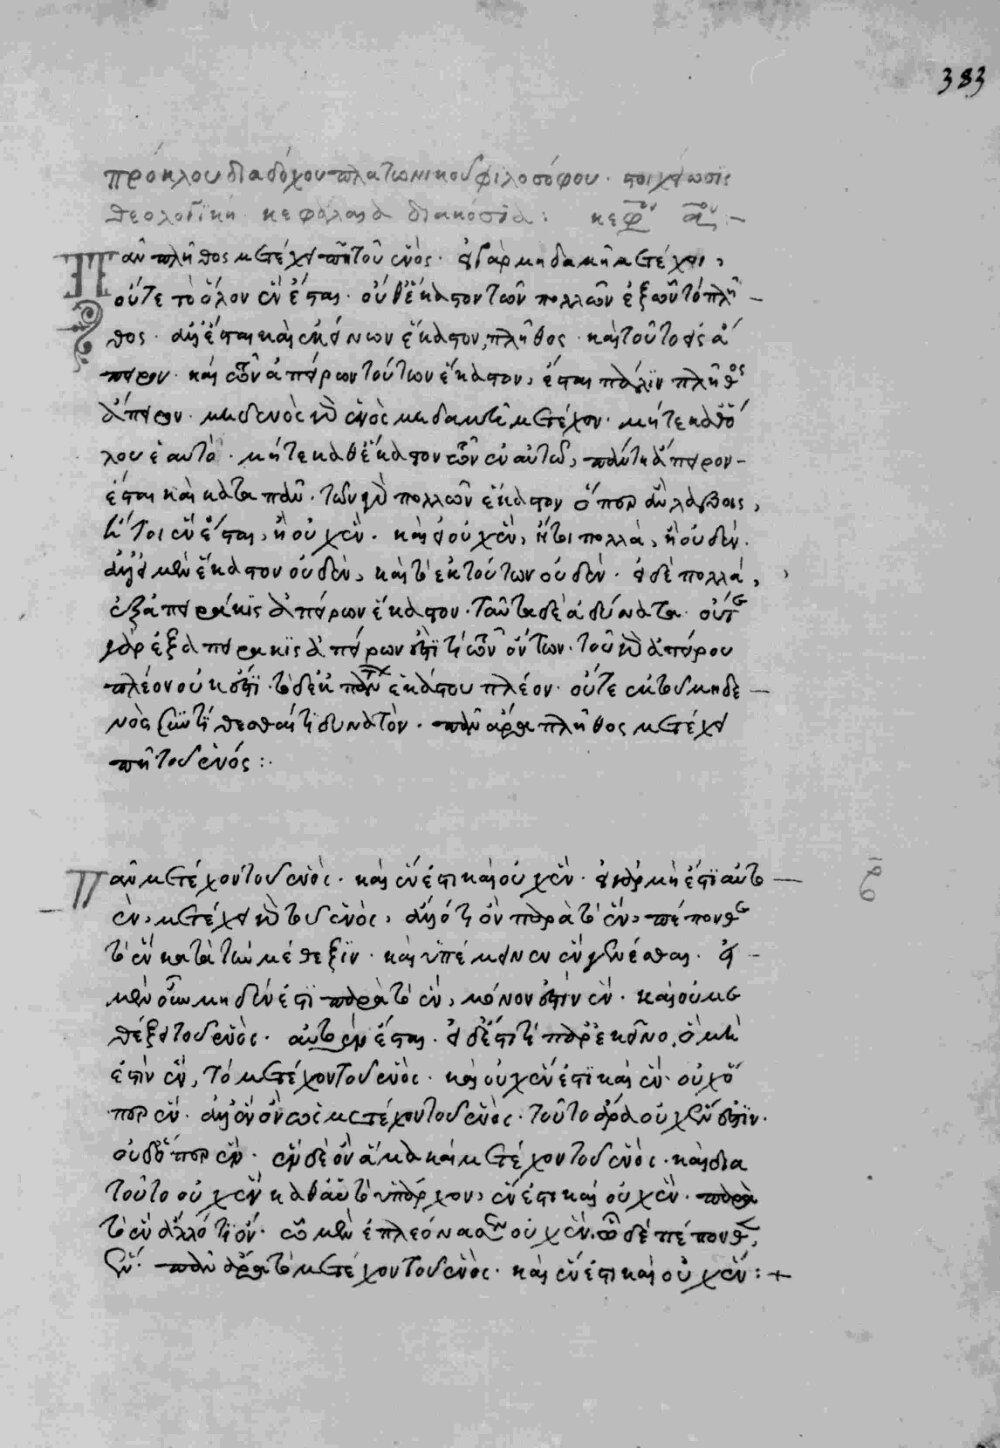 383
πρόκλου διαδόχου πλατωνικοῦ φιλοσόφου. στοιχείωσις
θεολογικὴ κεφάλαια διακόσια: κεφ αον –
Πᾶν πλῆθος μετέχει πῃ τοῦ ἑνός. εἰ γὰρ μηδαμῇ μετέχει,
οὔτε τὸ ὅλον ἓν ἔσται. οὔθ' ἕκαστον τῶν πολλῶν ἐξ ὧν τὸ πλῆ –
θος. ἀλλ' ἔσται καὶ ἐκείνων ἕκαστον, πλῆθος. καὶ τοῦτο εἰς ἄ
πειρον. καὶ τῶν ἀπείρων τούτων ἕκαστον, ἔσται πάλιν πλῆθος
ἄπειρον. μηδενὸς γὰρ ἑνὸς μηδαμῇ μετέχον. μήτε καθ' ὅ
λον ἑαυτό. μήτε καθ' ἕκαστον τῶν ἐν αὐτῷ, πάντῃ ἄπειρον –
ἔσται καὶ κατὰ πᾶν. τῶν γὰρ πολλῶν ἕκαστον ὅπερ ἂν λάβοις,
ἤτοι ἓν ἔσται, ἢ οὐχ ἕν. καὶ εἰ οὐχ ἕν, ἤτοι πολλὰ, ἢ οὐδέν.
ἀλλ' εἰ μὲν ἕκαστον οὐδὲν, καὶ τὸ ἐκ τούτων οὐδέν. εἰ δὲ πολλά,
ἐξ ἀπειράκις ἀπείρων ἕκαστον. ταῦτα δὲ ἀδύνατα. οὔτε
γὰρ ἐξ ἀπειράκις ἀπείρων ἐστί τι τῶν ὄντων. τοῦ γὰρ ἀπείρου
πλέον οὐκ ἔστι. τὸ δὲ ἐκ πάντων ἑκάστου πλέον. οὔτε ἐκ τοῦ μηδε –
νὸς συντίθεσθαί τι δυνατόν. πᾶν ἄρα πλῆθος μετέχει
πῃ τοῦ ἑνός:.
Πᾶν μετέχον τοῦ ἑνὸς. καὶ ἕν ἐστι καὶ οὐχ ἕν. εἰ γὰρ μή ἐστι αὐτο –
έν, μετέχει γὰρ τοῦ ἑνὸς, ἄλλό τι ὂν παρὰ τὸ ἕν, πέπονθε
τὸ ἓν κατὰ τὴν μέθεξιν. καὶ ὑπέμεινεν ἓν γενέσθαι. εἰ –
μὲν οὖν μηδέν ἐστι παρὰ τὸ ἕν, μόνον ἐστὶν ἕν. καὶ οὐ με
θέξει τοῦ ἑνὸς. αὐτοὲν ἔσται. εἰ δ' ἔστι τι παρ' ἐκεῖνο, ὃ μή
ἐστιν ἕν, τὸ μετέχον τοῦ ἑνὸς. καὶ οὐχ ἕν ἐστι καὶ ἕν. οὐχ ὅ
περ ἕν. ἀλλ' ἓν ὂν ὡς μετέχον τοῦ ἑνὸς. τοῦτο ἄρα οὐχ ἕν ἐστιν.
οὐδ' ὅπερ ἕν. ἓν δὲ ὂν ἅμα καὶ μετέχον τοῦ ἑνὸς. καὶ διὰ
τοῦτο οὐχ ἓν καθ' αὑτὸ ὑπάρχον, ἕν ἐστι καὶ οὐχ ἕν. παρὰ
τὸ ἓν ἄλλό τι ὄν. ᾧ μὲν ἐπλεόνασεν οὐχ ἕν. ᾧ δὲ πέπονθεν,
ἕν. πᾶν ἄρα τὸ μετέχον τοῦ ἑνὸς. καὶ ἕν ἐστι καὶ οὐχ ἕν: +